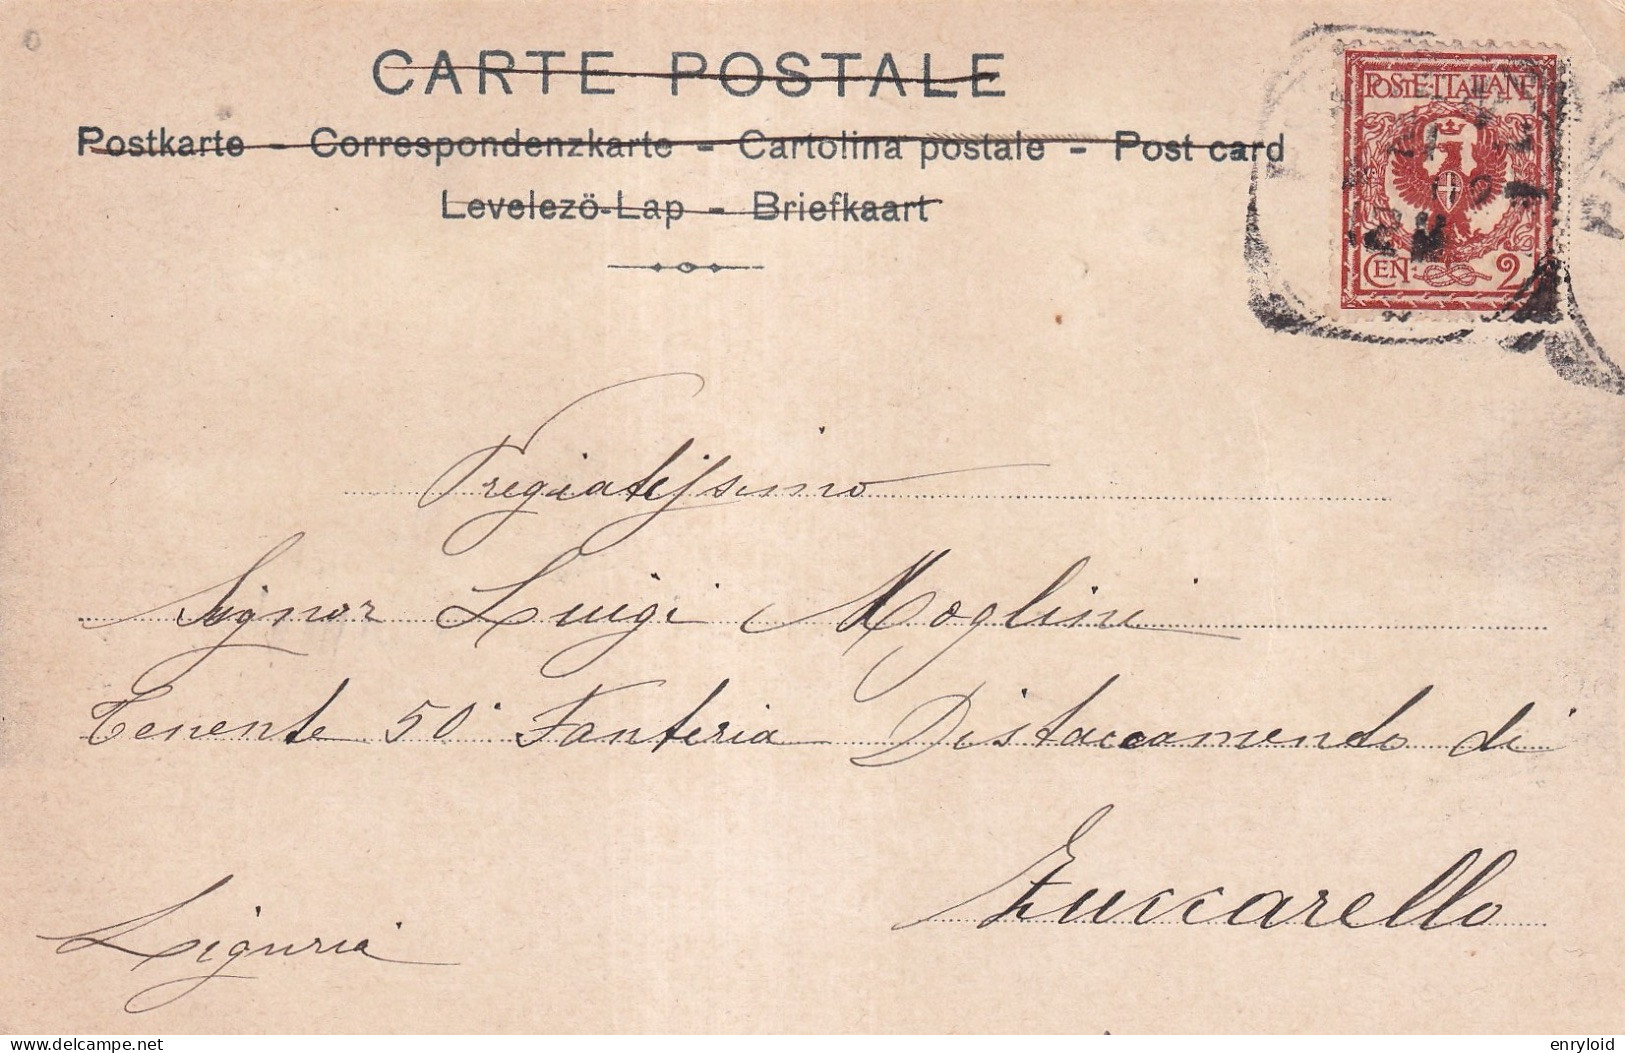 CARTE POSTALE
Postkarte - Correspondenzkarte - Cartolina postale - Post card
Levelezö-Lap - Briefkaart
POSTE·ITALIANE
CENT. 2
Pregiatissimo
Signor Luigi Moglini
Tenente 50° Fanteria Distaccamento di
Zuccarello
Liguria
delcampe.net
enryloid